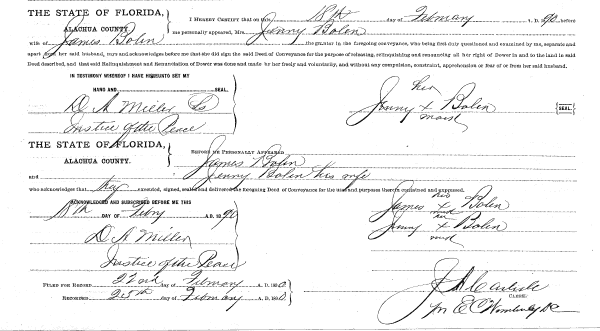 THE STATE OF FLORIDA,
ALACHUA COUNTY.
I HEREBY CERTIFY that on this 18th day of February A. D. 1890, before
me personally appeared, Mrs. Jenny Bolen
wife of James Bolen the grantor in the foregoing conveyance, who being first duly questioned and examined by me, separate and
apart from her said husband, says and acknowledges before me that she did sign the said Deed of Conveyance for the purpose of releasing, relinquishing and renouncing all her right of Dower in and to the land in said
Deed described, and that said Relinquishment and Renunciation of Dower was done and made by her freely and voluntarily, and without any compulsion, constraint, apprehension or fear of or from her said husband.
IN TESTIMONY WHEREOF I HAVE HEREUNTO SET MY
HAND AND SEAL.
D A Miller LS
Justice of the Peace
her
Jenny + Bolen {SEAL.}
mark
THE STATE OF FLORIDA,
ALACHUA COUNTY.
BEFORE ME PERSONALLY APPEARED
James Bolen
and Jenny Bolen his wife
who acknowledges that they executed, signed, sealed and delivered the foregoing Deed of Conveyance for the uses and purposes therein contained and expressed.
ACKNOWLEDGED AND SUBSCRIBED BEFORE ME THIS
18th DAY OF Febry A. D. 1890
D A Miller
Justice of the Peace
his
James + Bolen
mark
her
Jenny + Bolen
mark
FILED FOR RECORD 22nd day of February A. D. 1890
RECORDED 25th day of February A. D. 1890
J A Carlisle
CLERK.
Per E C Wimberly DC